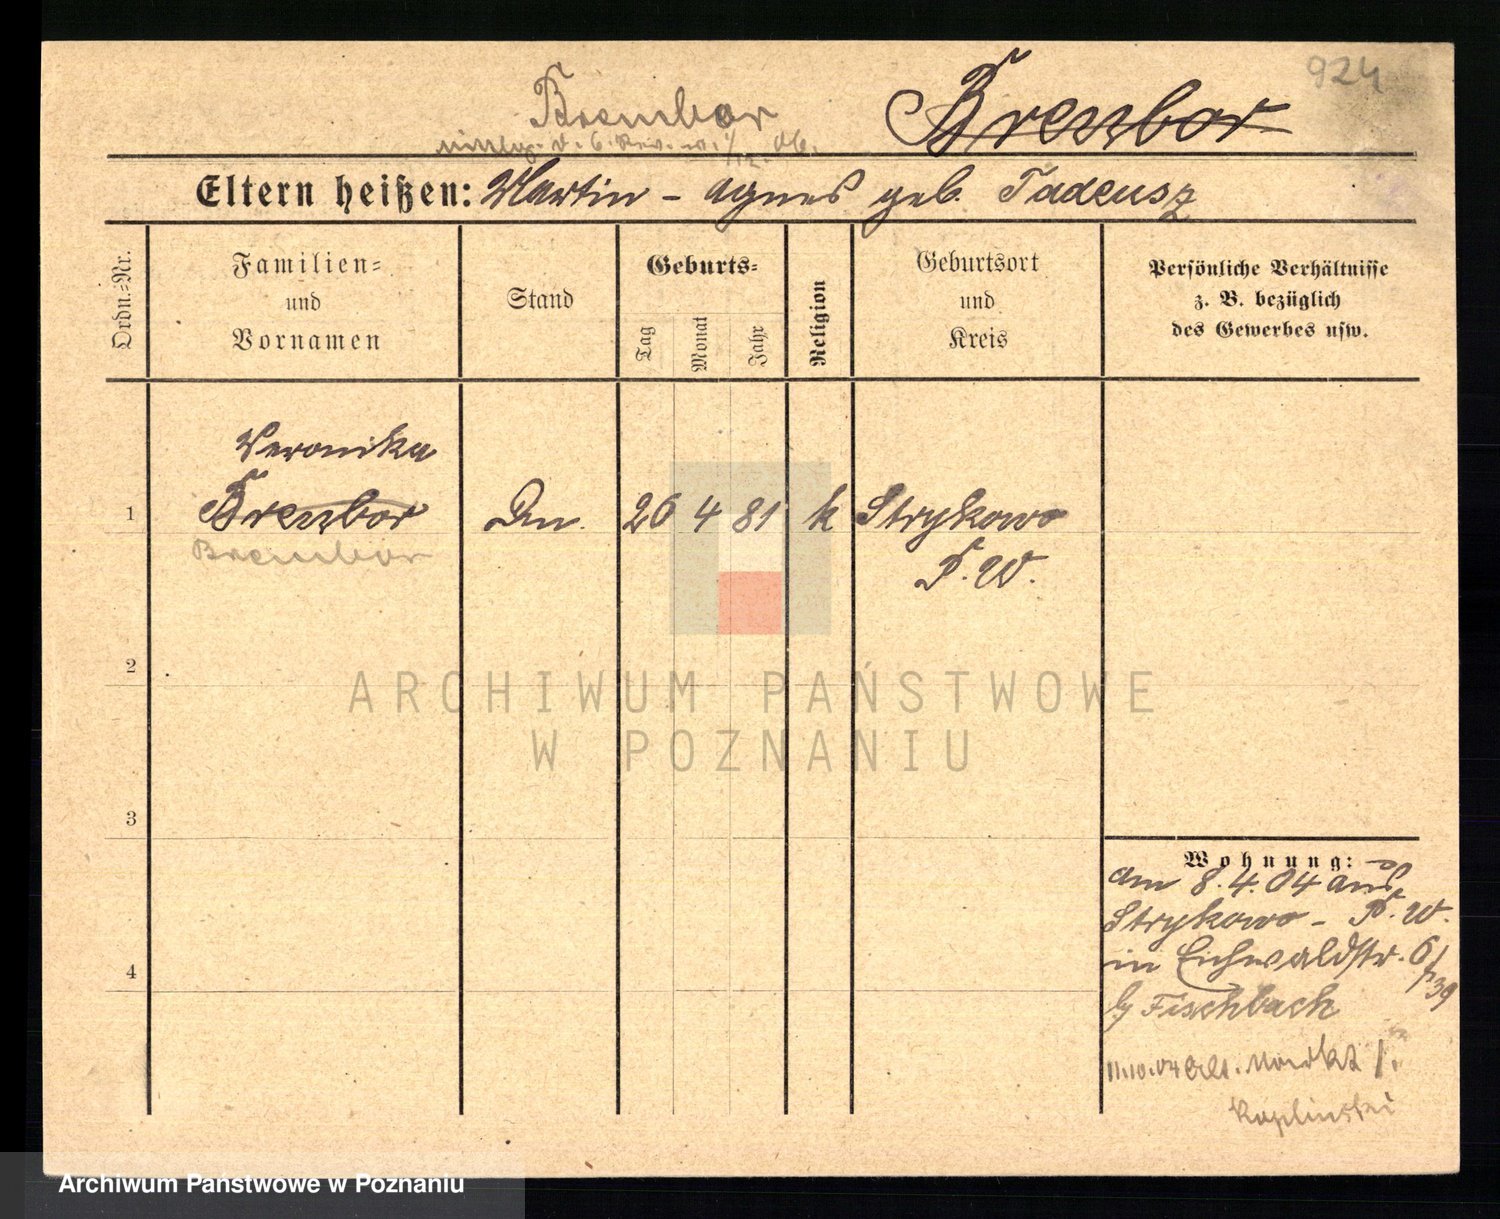 924
Brembor
Brenbor
Eltern heißen: Martin – Agnes geb. Tadeusz
Ordn.-Nr.
Familien-
und
Vornamen
Stand
Geburts-
Tag
Monat
Jahr
Religion
Geburtsort
und
Kreis
Persönliche Verhältnisse
z. B. bezüglich
des Gewerbes usw.
Veronika
1 Brenbor Dm. 26 4 81 k Strykowo
Brembor
P. W.
2
3
4
Wohnung:
am 8.4.04 aus
Strykowo – P. W.
in Eichwaldstr. 6/
39
b/ Fischbach
11.10.04 Alt. Markt
Kaplinski
ARCHIWUM PAŃSTWOWE
W POZNANIU
Archiwum Państwowe w Poznaniu